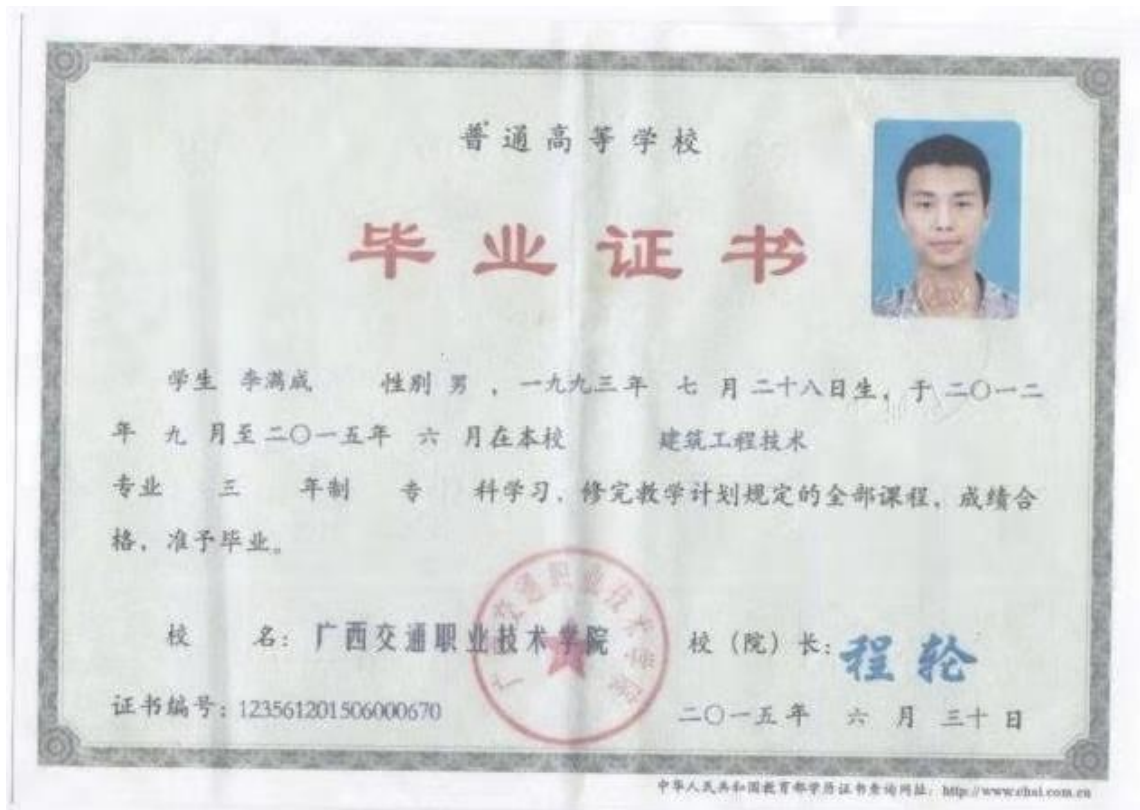 普通高等学校
毕业证书
学生 李满成 性别 男 ，一九九三年 七 月 二十八日生，于 二〇一二
年 九 月至 二〇一五年 六 月在本校 建筑工程技术
专业 三 年制 专 科学习，修完教学计划规定的全部课程，成绩合
格，准予毕业。
广西交通职业技术学院
校 名：广西交通职业技术学院 校（院）长：程轮
证书编号：123561201506000670 二〇一五年 六 月 三十 日
中华人民共和国教育部学历证书查询网址：http://www.chsi.com.cn